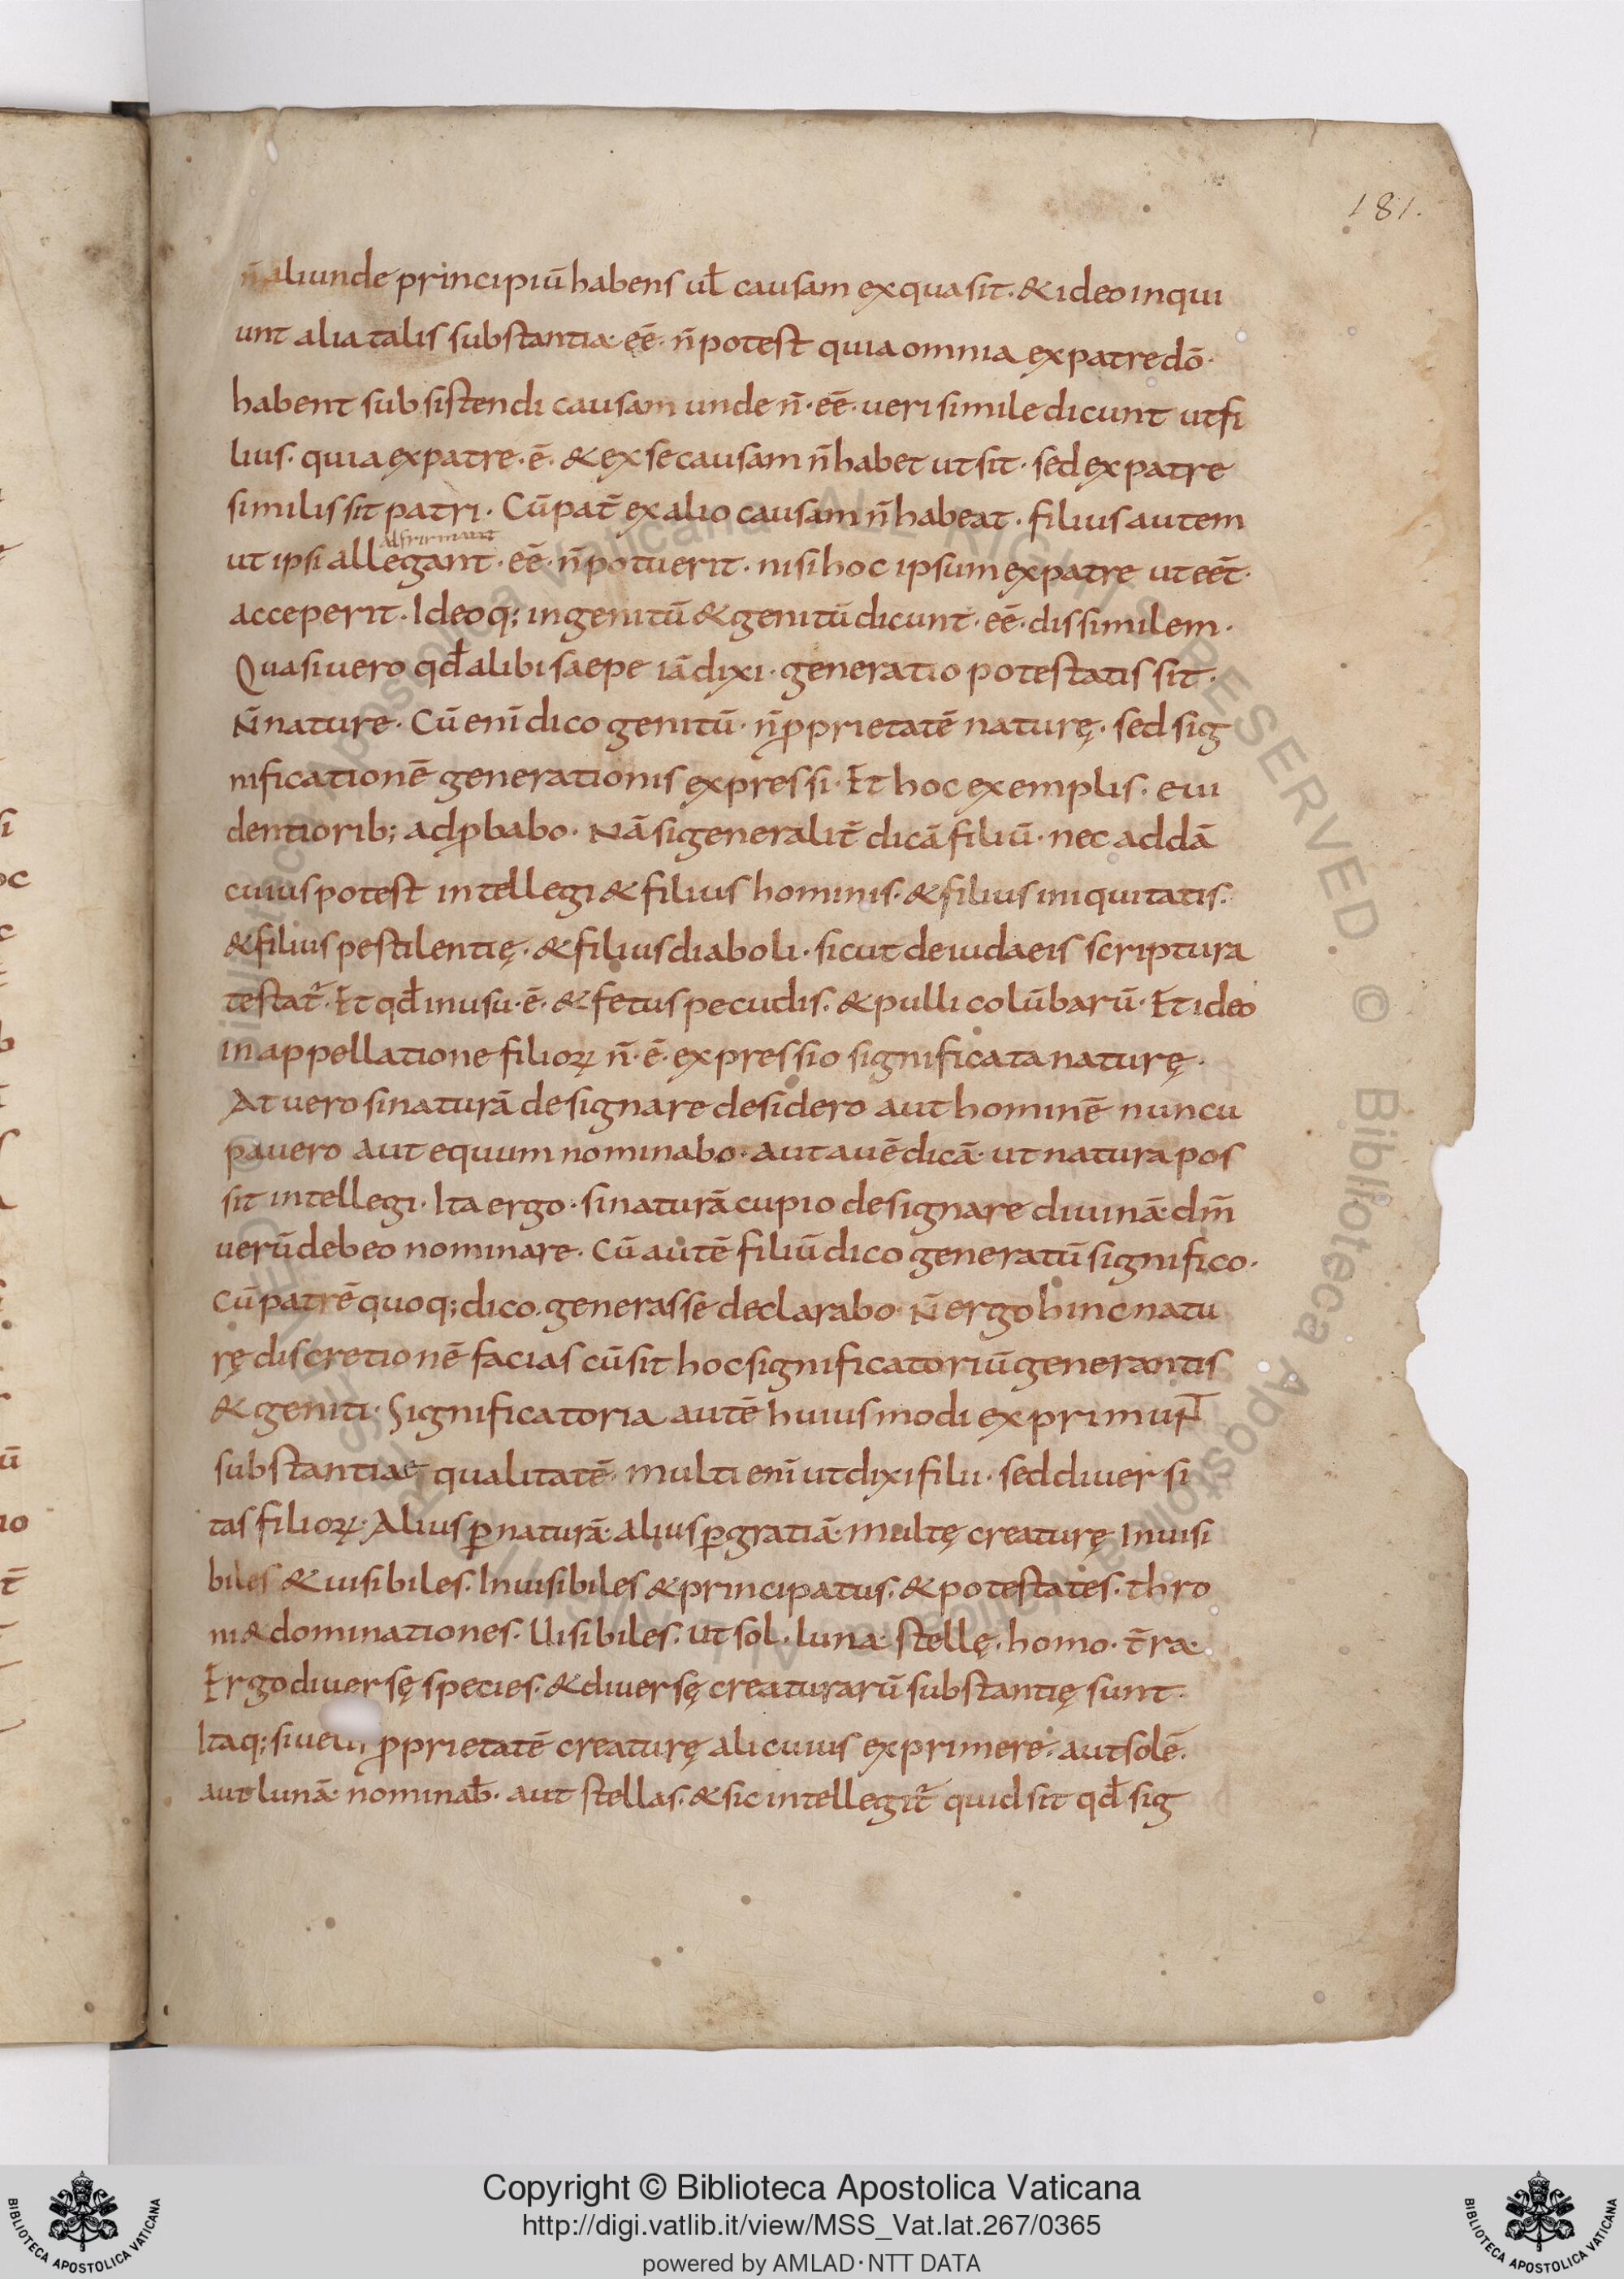 181.
n̄ aliunde principiū habens ul̄ causam ex qua sit · & ideo inqui
unt alia talis substantia · eē · n̄ potest quia omnia ex patre dō ·
habent subsistendi causam unde n̄ · eē · ueri simile dicunt ut fi
lius · quia ex patre · ē · & ex se causam n̄ habet ut sit · sed ex patre
similis sit patri · Cū pat̄ ex alio causam n̄ habeat · filius autem
adfirmant
ut ipsi allegant · eē · n̄ potuerit · nisi hoc ipsum ex patre ut eēt ·
acceperit · Ideoq; ingenitū & genitū dicunt · eē · dissimilem ·
Quasi uero qd̄ alibi saepe iā dixi · generatio potestatis sit ·
N̄ nature · Cū enī dico genitū · n̄ ꝓprietatē naturę · sed sig
nificationē generationis expressi · Et hoc exemplis · eui
dentiorib; adꝓbabo · Nā si generalit̄ dicā filiū · nec addā
cuius potest intellegi & filius hominis · & filius iniquitatis ·
& filius pestilentię · & filius diaboli · sicut de iudaeis scriptura
testat̄ · Et qd̄ in usu · ē · & fetus pecudis · & pulli colūbarū · Et ideo
in appellatione filioꝝ n̄ · ē · expressio significata naturę ·
At uero si naturā designare desidero aut hominē nuncu
pauero aut equum nominabo · aut auē dicā · ut natura pos
sit intellegi · Ita ergo · si naturā cupio designare diuinā · dm̄
uerū debeo nominare · Cū autē filiū dico generatū significo ·
Cū patrē quoq; dico · generasse declarabo · N̄ ergo hinc natu
rę discretionē facias cū sit hoc significatoriū generantis
& geniti · Significatoria autē huiusmodi exprimunt
substantiae qualitatē · multi enī ut dixi filii · sed diuersi
tas filioꝝ · Alius ꝑ naturā · alius ꝑ gratiā · multę creaturę Inuisi
biles & uisibiles · Inuisibiles & principatus · & potestates · thro
ni & dominationes · Uisibiles · ut sol · luna · stellę · homo · t̄ra ·
Ergo diuersę species · & diuersę creaturarū substantię sunt ·
Itaq; si uelī ꝓprietatē creaturę alicuius exprimere · aut solē ·
aut lunā · nominab̄ · aut stellas · & sic intellegit̄ quid sit qd̄ sig
Copyright © Biblioteca Apostolica Vaticana
http://digi.vatlib.it/view/MSS_Vat.lat.267/0365
powered by AMLAD · NTT DATA
BIBLIOTECA APOSTOLICA VATICANA
BIBLIOTECA APOSTOLICA VATICANA